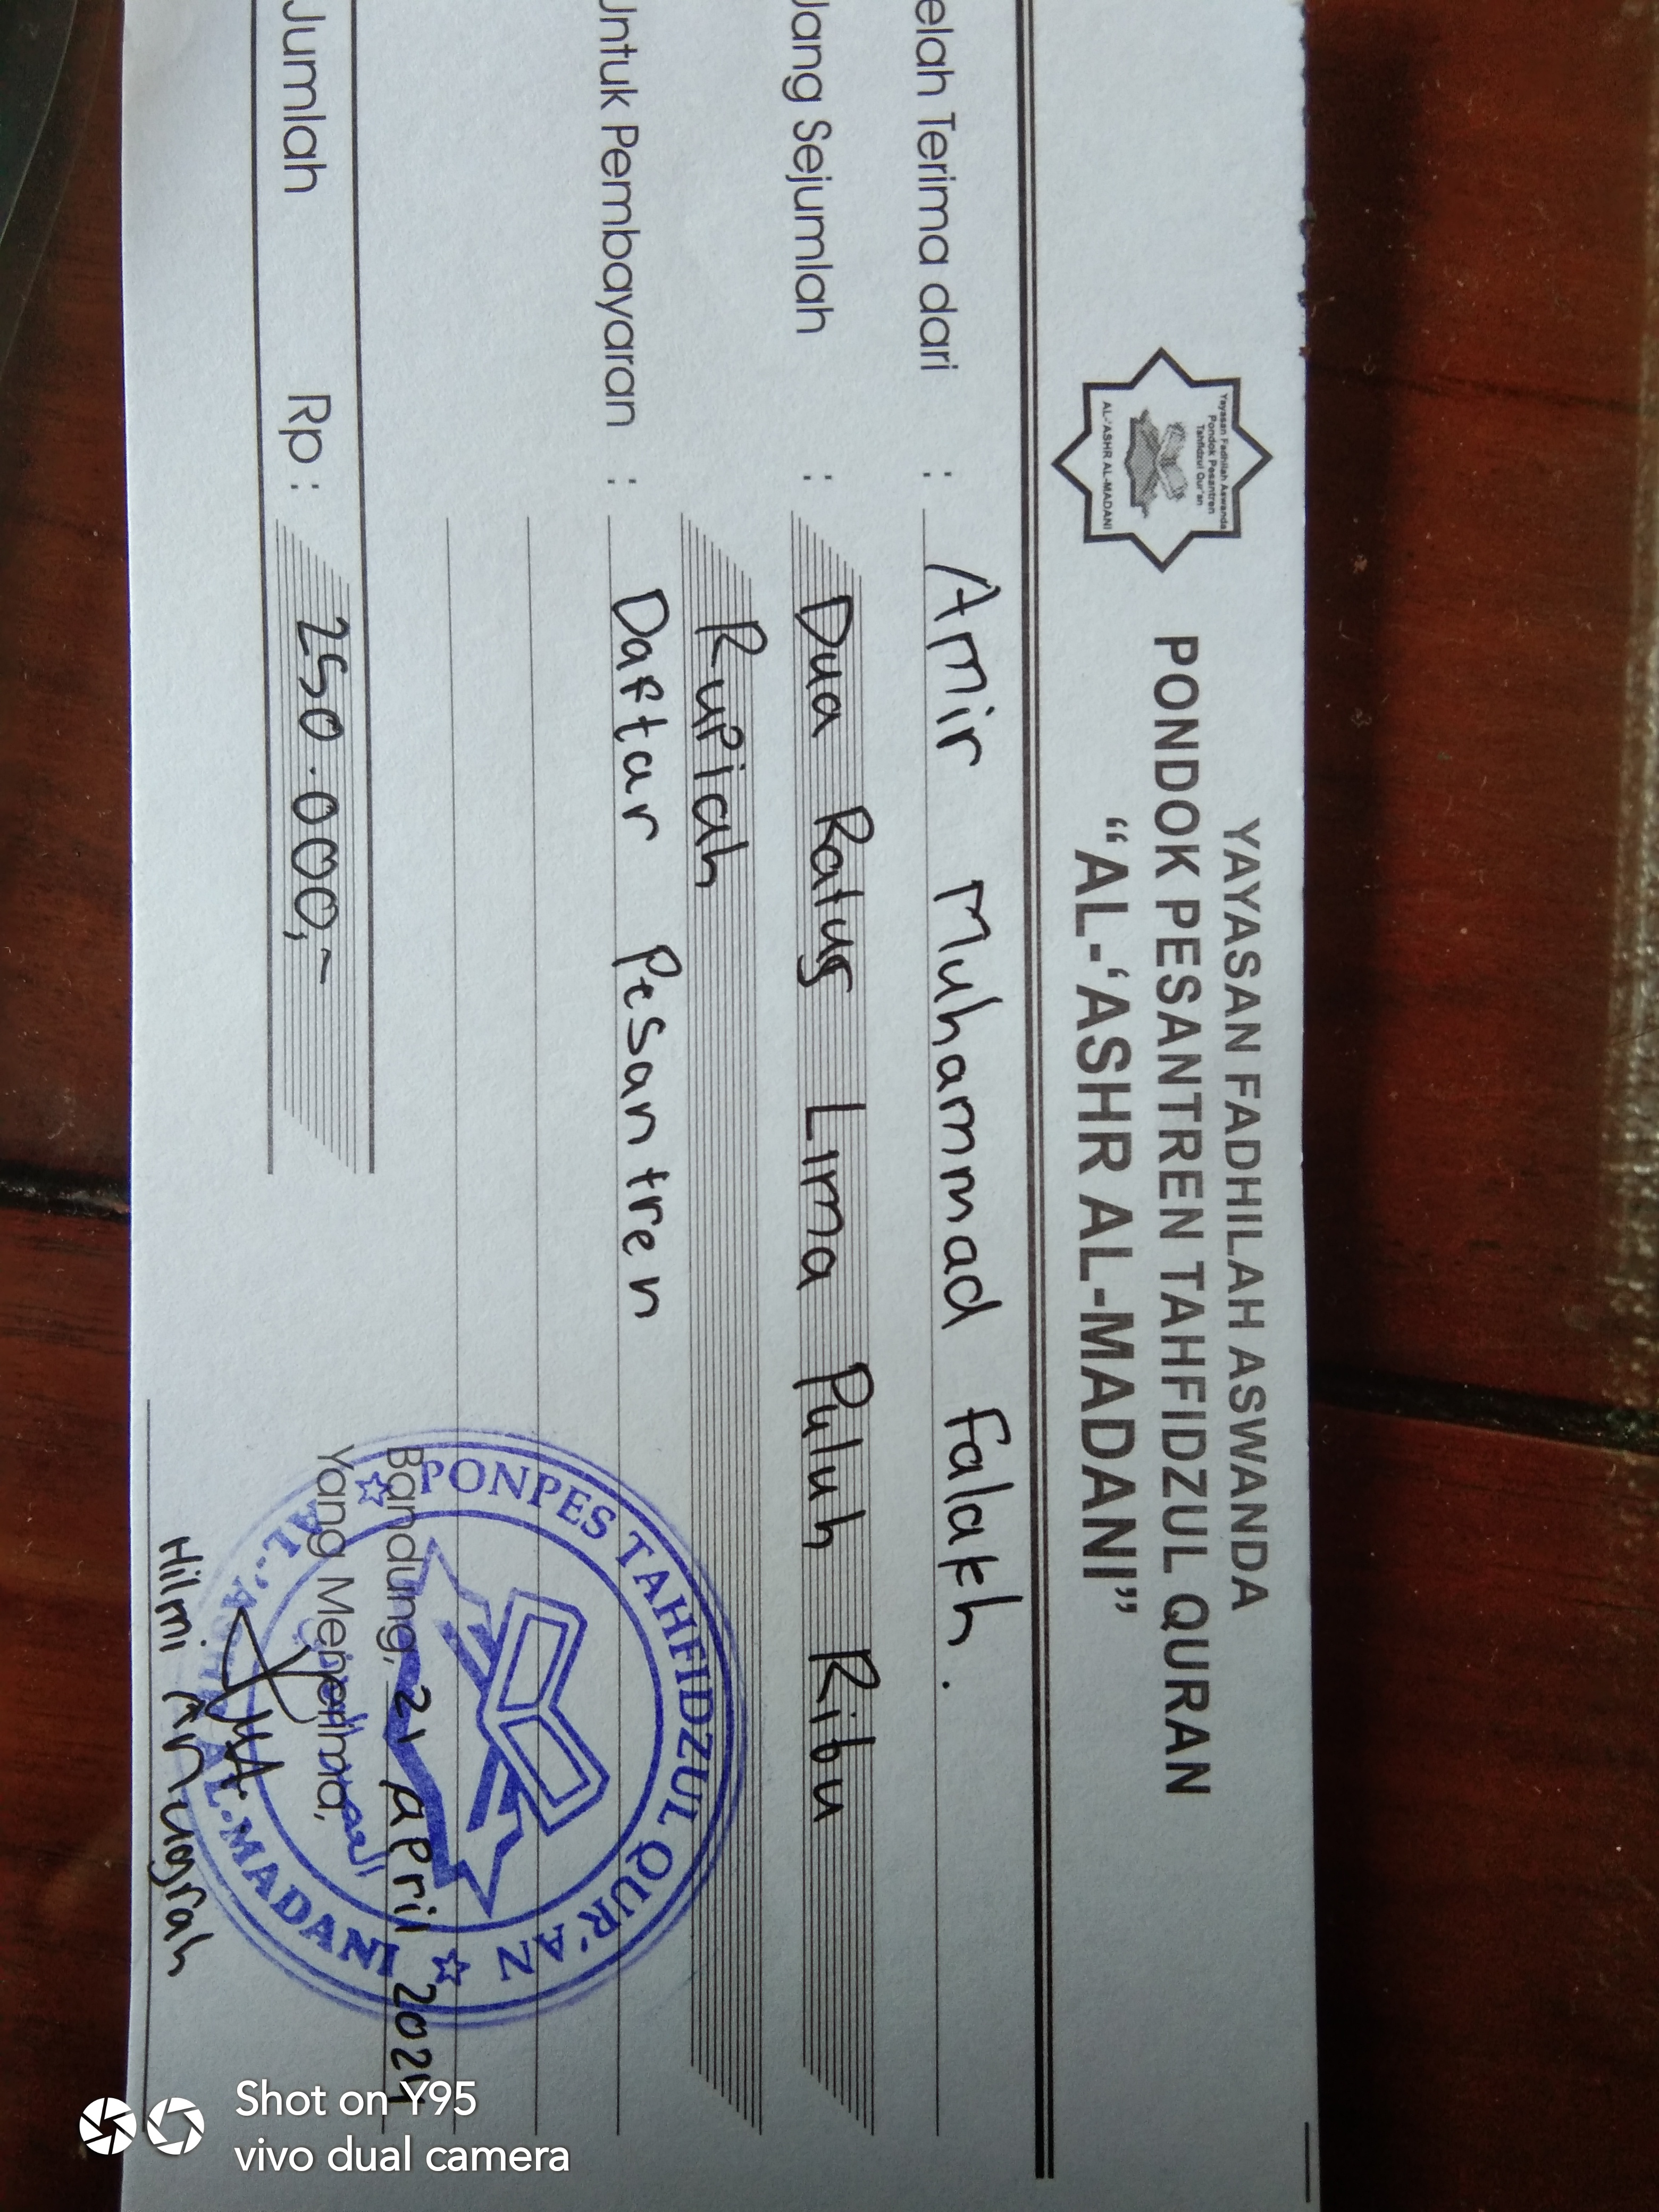 YAYASAN FADHILAH ASWANDA
PONDOK PESANTREN TAHFIDZUL QURAN
"AL-'ASHR AL-MADANI"
Yayasan Fadhilah Aswanda
Pondok Pesantren
Tahfidzul Qur'an
AL-'ASHR AL-MADANI
elah Terima dari : Amir Muhammad Falakh.
Jang Sejumlah : Dua Ratus Lima Puluh Ribu
Rupiah
Untuk Pembayaran : Daftar Pesantren
Jumlah Rp : 250.000,-
Bandung, 21 April 2024
Yang Menerima,
PONPES TAHFIDZUL QUR'AN
AL-'ASHR AL-MADANI
Hilmi
Shot on Y95
vivo dual camera